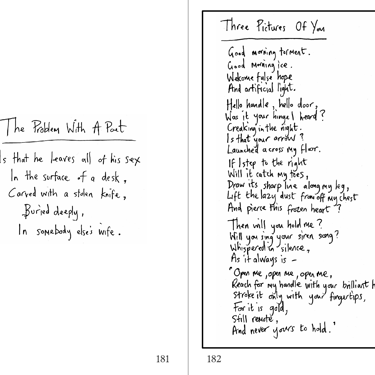 The Problem With A Poet
Is that he leaves all of his sex
In the surface of a desk,
Carved with a stolen knife,
Buried deeply,
In somebody else's wife.
181
Three Pictures Of You
Good morning torment.
Good morning ice.
Welcome false hope
And artificial light.
Hello handle, hello door,
Was it your hinge I heard?
Creaking in the night.
Is that your arrow?
Launched across my floor.
If I step to the right
Will it catch my toes,
Draw its sharp line along my leg,
Lift the lazy dust from off my chest
And pierce this frozen heart?
Then will you hold me?
Will you sing your siren song?
Whispered in silence,
As it always is –
"Open me, open me, open me,
Reach for my handle with your brilliant
Stroke it only with your fingertips,
For it is gold,
Still remote,
And never yours to hold."
182